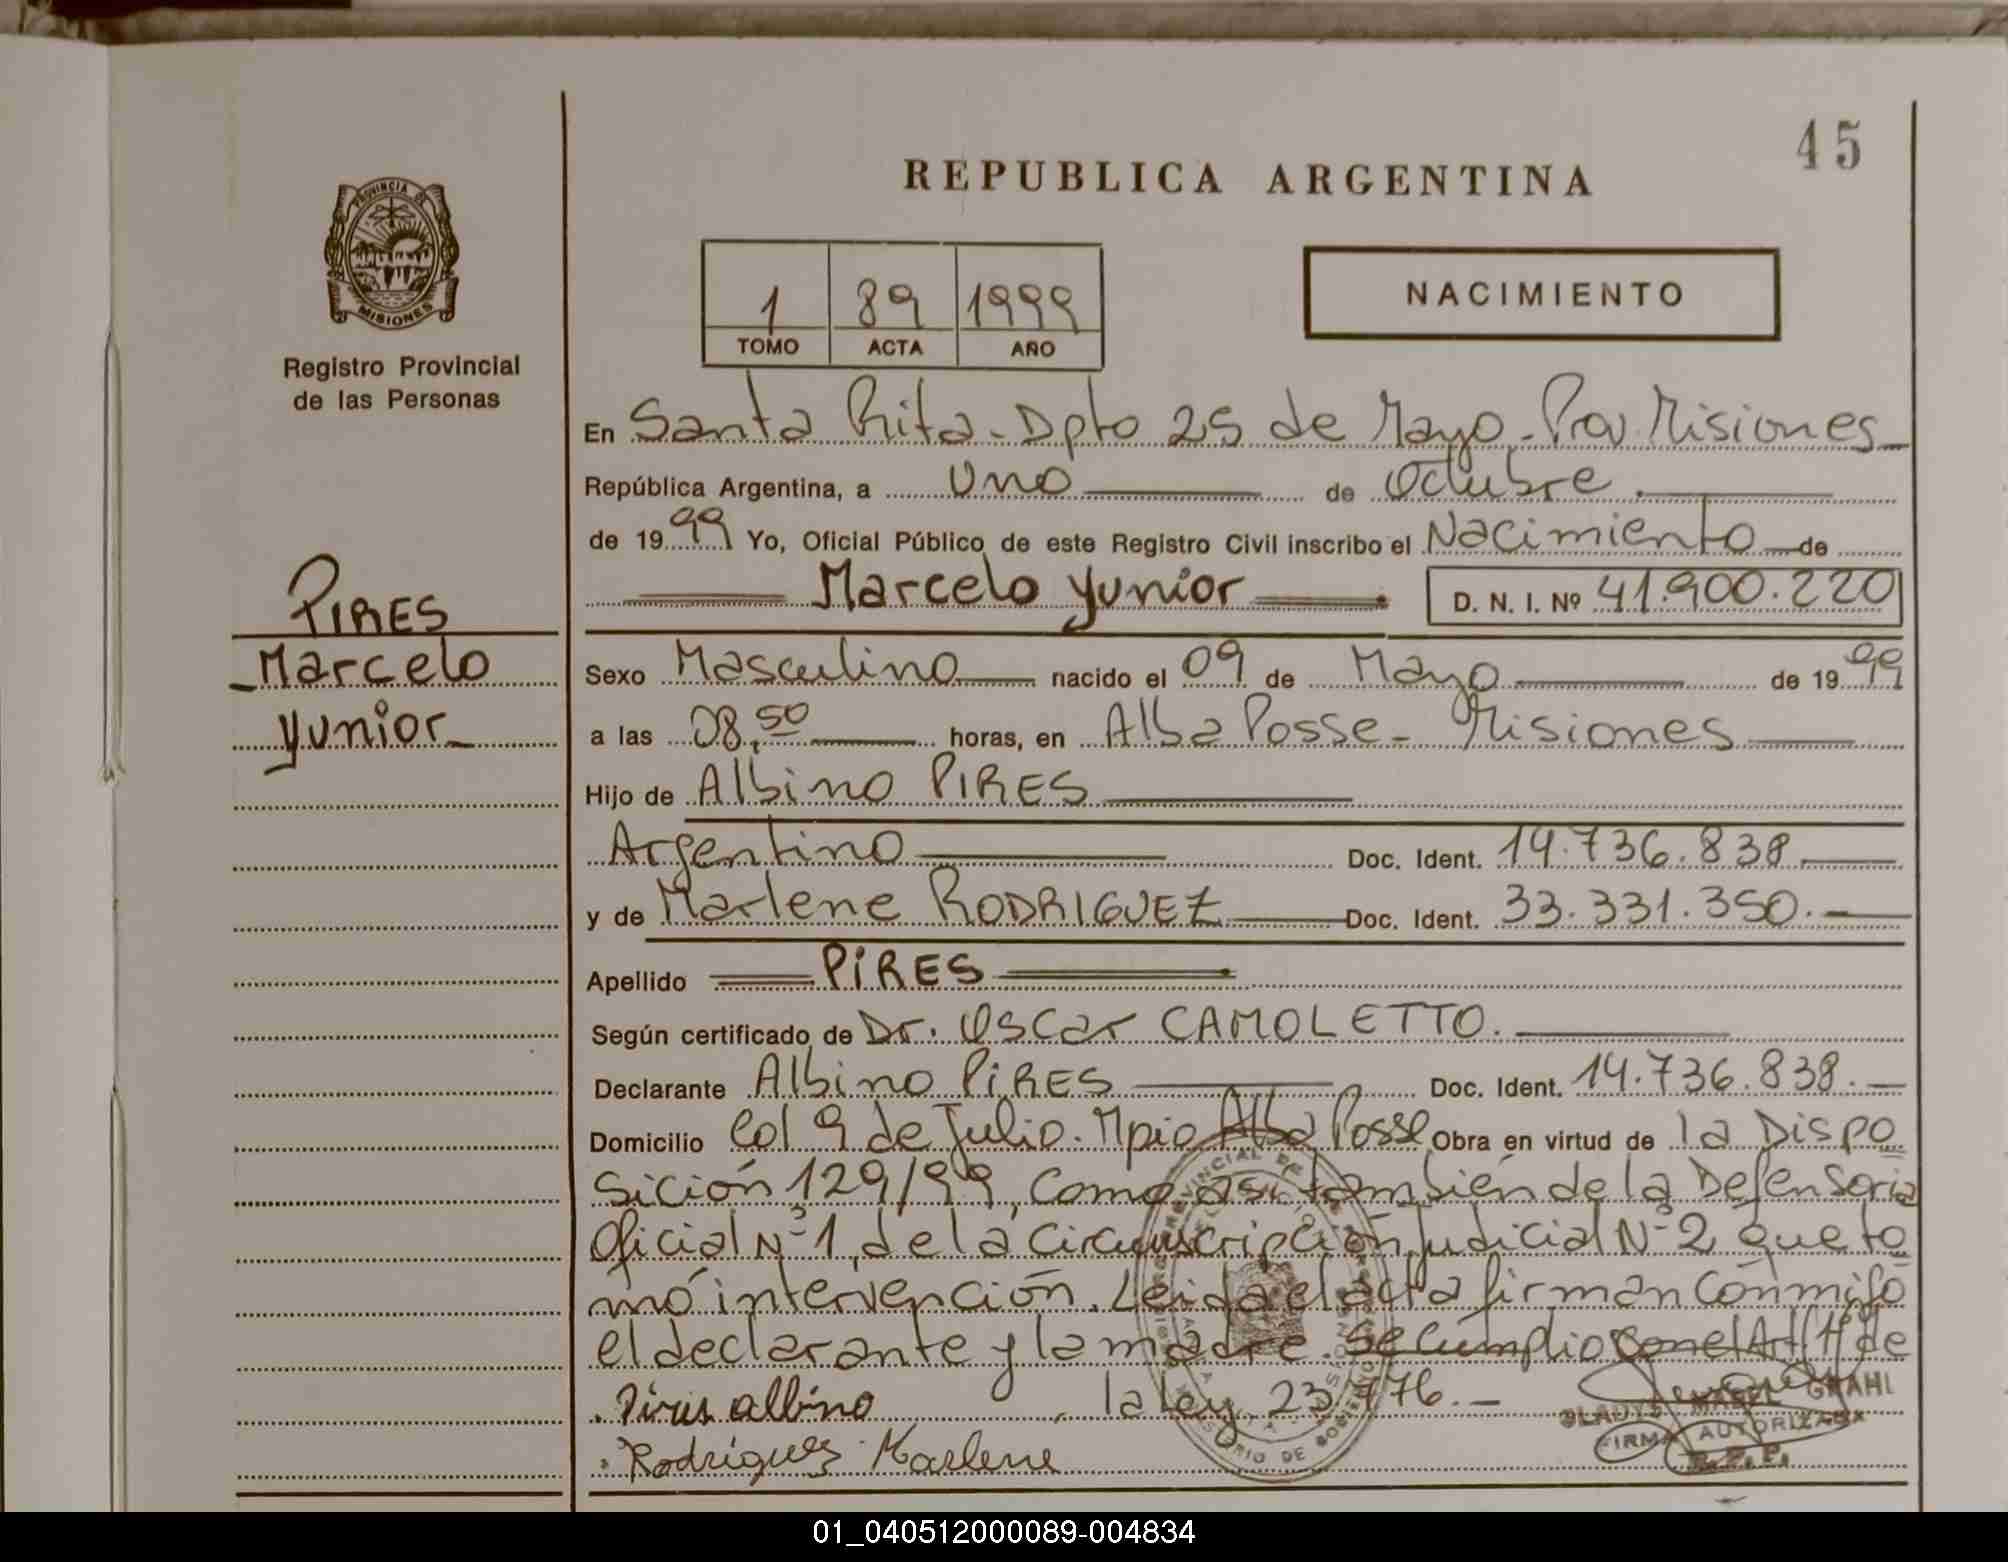 45
REPUBLICA ARGENTINA
PROVINCIA DE
MISIONES
Registro Provincial
de las Personas
1 89 1999
TOMO ACTA AÑO
NACIMIENTO
En Santa Rita - Dpto 25 de Mayo - Prov. Misiones
República Argentina, a Uno de Octubre
de 1999 Yo, Oficial Público de este Registro Civil inscribo el Nacimiento de
Marcelo Yunior D. N. I. Nº 41.900.220
PIRES
Marcelo
Yunior
Sexo Masculino nacido el 09 de Mayo de 1999
a las 08,50 horas, en Alba Posse - Misiones
Hijo de Albino PIRES
Argentino Doc. Ident. 14.736.838
y de Marlene RODRIGUEZ Doc. Ident. 33.331.350.
Apellido PIRES
Según certificado de Dr. Oscar CAMOLETTO.
Declarante Albino PIRES Doc. Ident. 14.736.838.
Domicilio Col 9 de Julio. Mpio Alba Posse Obra en virtud de la Dispo
sición 129/99, como así también de la Defensoria
Oficial Nº 1, de la Circunscripción Judicial Nº 2 que to
mó intervención. Leida el acta firman conmigo
el declarante y la madre. Se cumplio con el Art 11º de
la Ley 23.776.-
Piris albino
Rodríguez Marlene
GLADYS MABEL GRAHL
FIRMA AUTORIZADA
R.P.P.
01_040512000089-004834